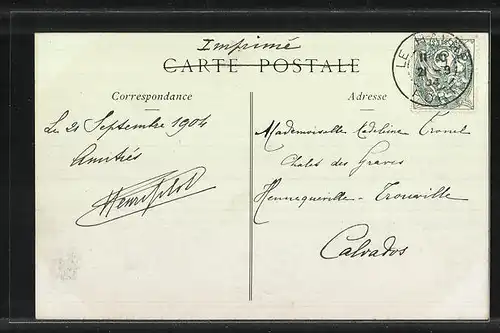 Imprimé
CARTE POSTALE
LE HAVRE
Correspondance
Adresse
Le 21 Septembre 1904
Amitiés
Mademoiselle Madeleine
Chalet des Graves
Hennequeville - Trouville
Calvados